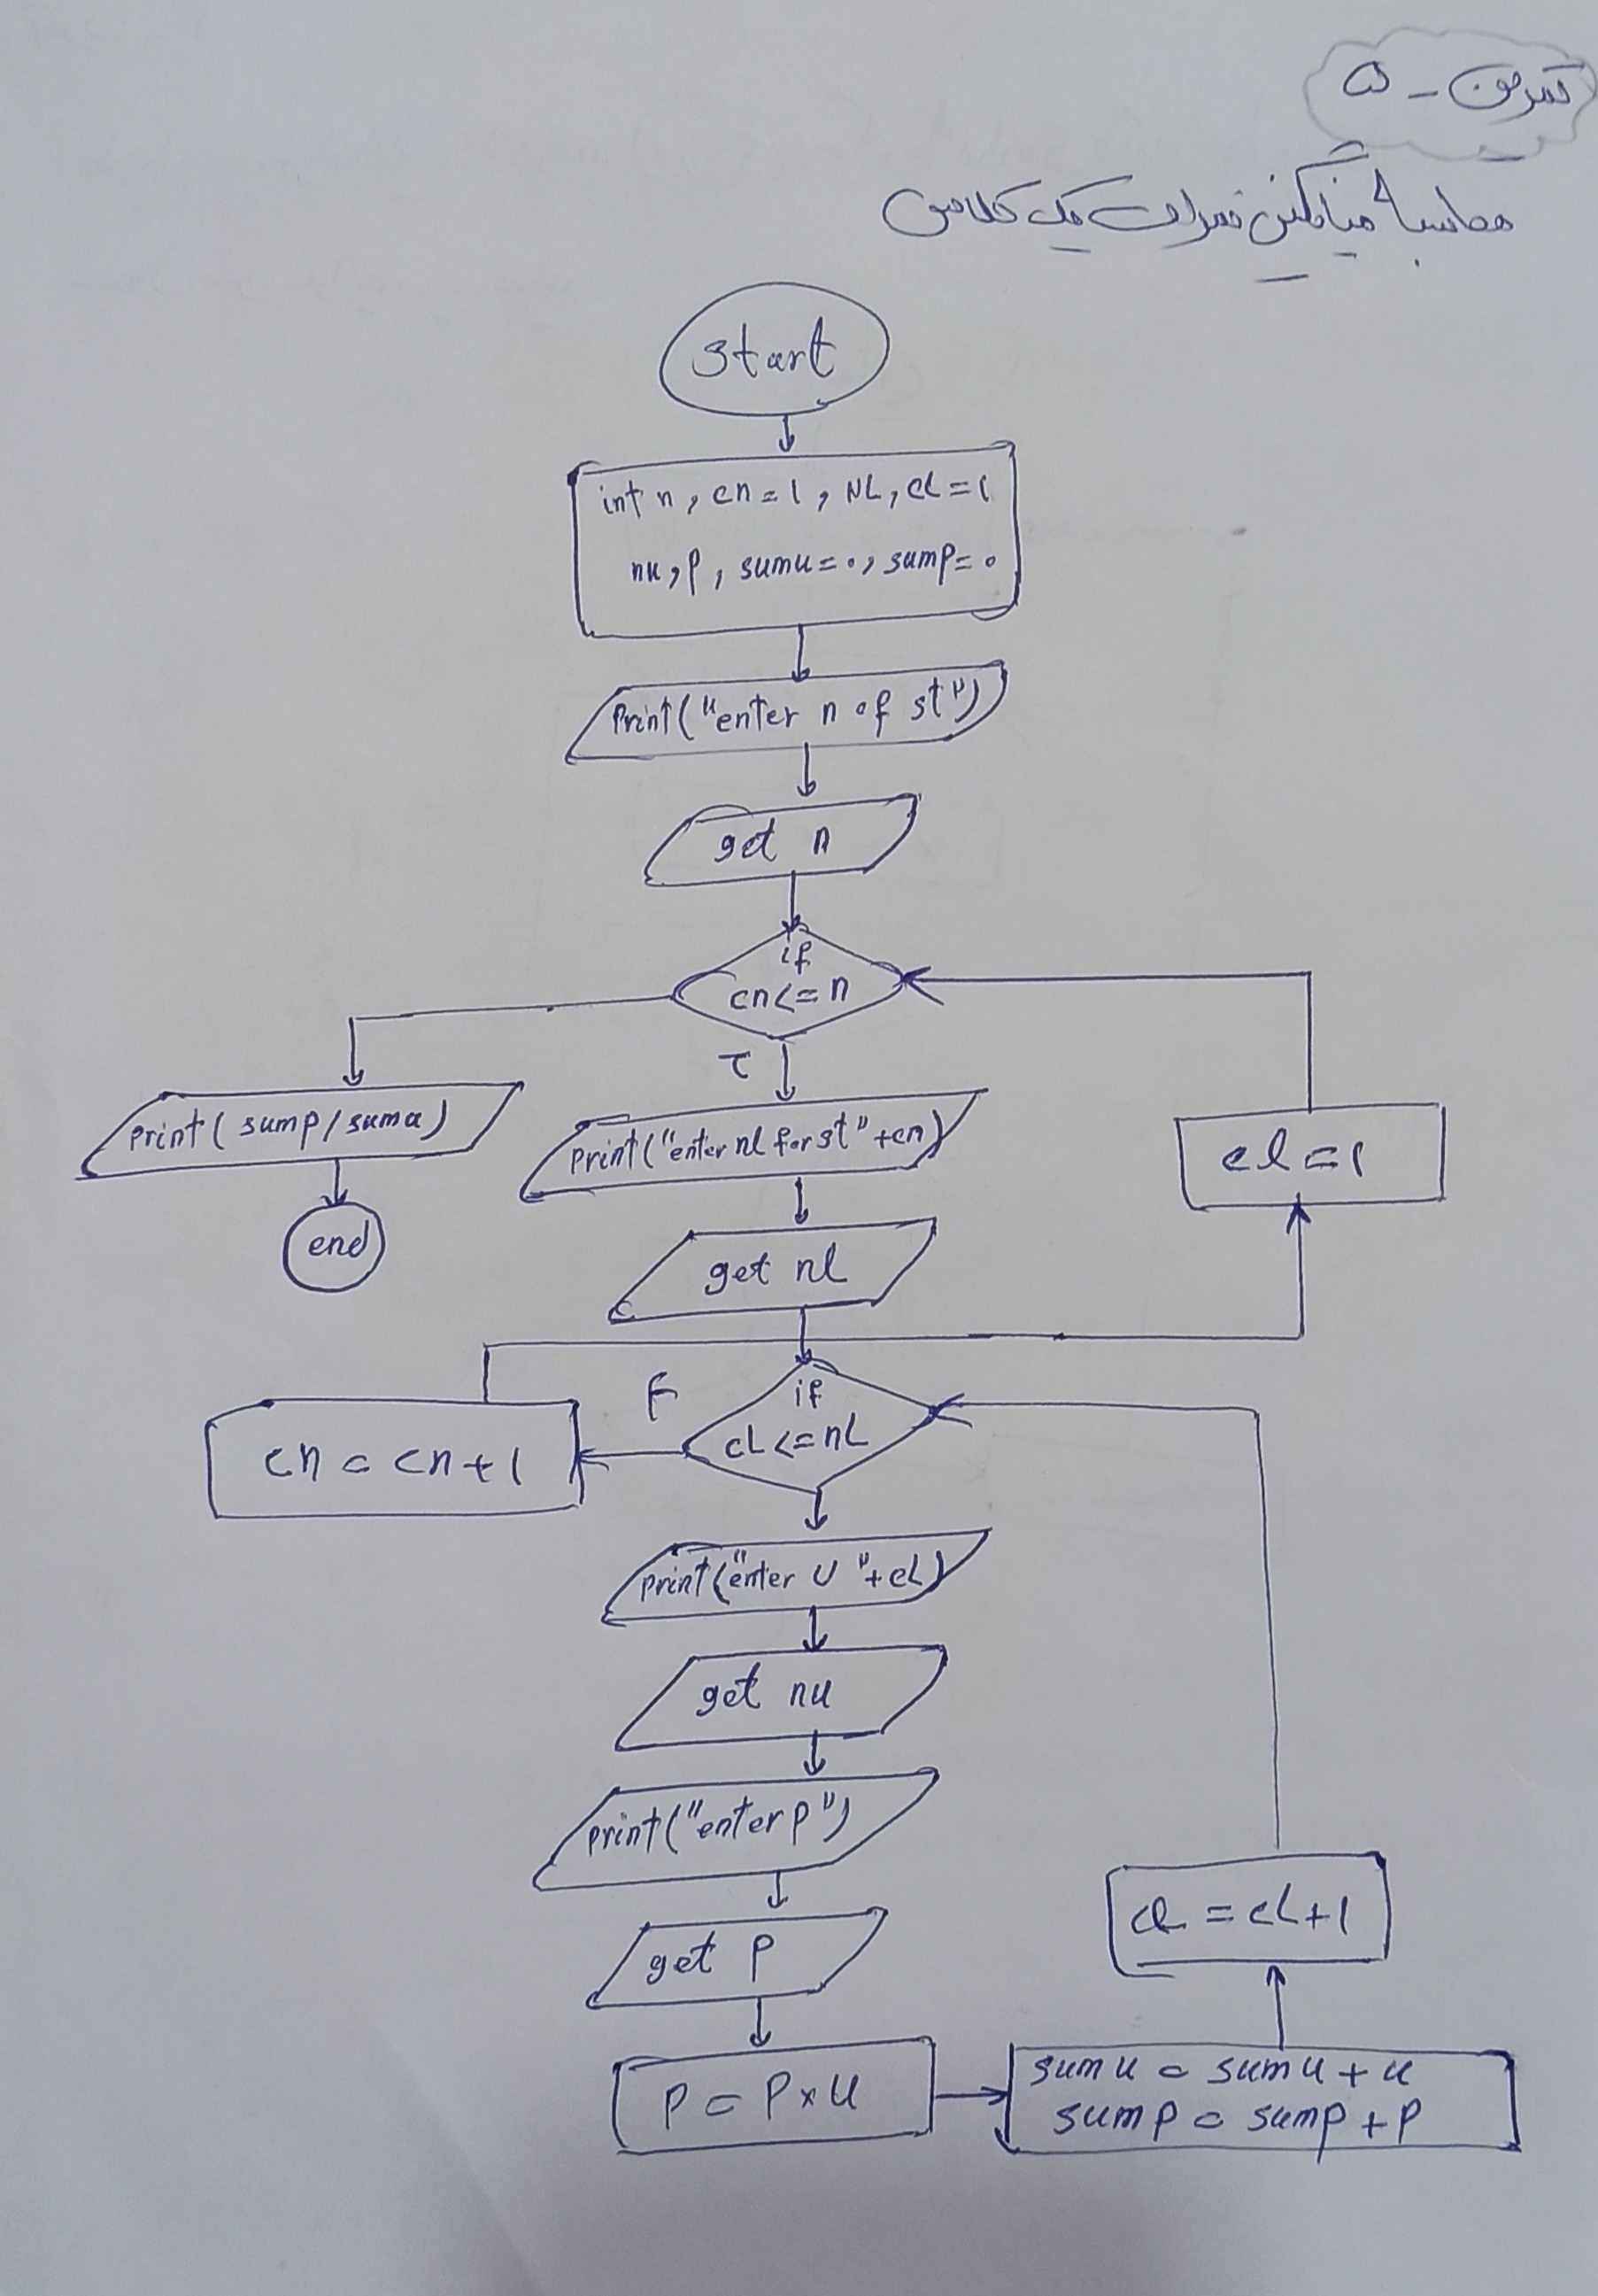 تمرین - ۵
محاسبه میانگین نمرات یک کلاس
start
int n, cn=1, NL, cL=1
nu, p, sumu=0, sump=0
Print("enter n of st")
get n
if
cn<=n
T
print(sump/sumu)
end
print("enter nl for st"+cn)
get nl
cl=1
if
cL<=nL
F
cn = cn+1
print("enter U "+cL)
get nu
print("enter p")
get p
cl = cL+1
P = P×U
sumu = sumu+u
sump = sump+p